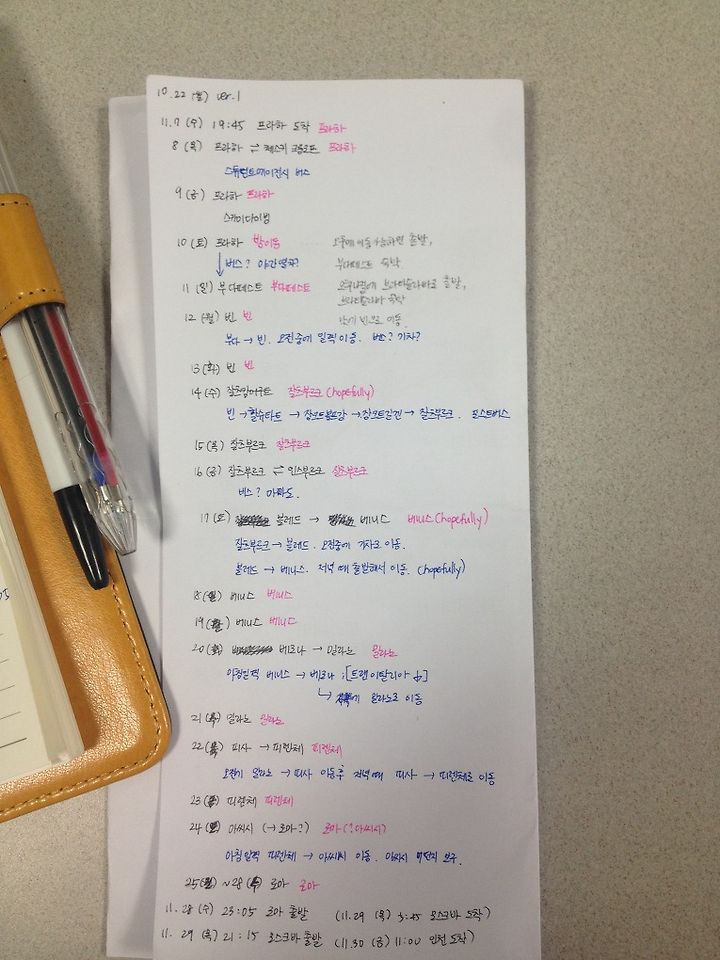 10.22 (월) ver.1
11.7 (수) 19:45 프라하 도착 프라하
8 (목) 프라하 ⇌ 체스키 크롬로프 프라하
스튜던트에이전시 버스
9 (금) 프라하 프라하
스카이다이빙
10 (토) 프라하 밤이동 오후에 이동가능하면 출발,
버스? 야간열차? 부다페스트 숙박
11 (일) 부다페스트 부다페스트 브라티슬라바로 출발,
브라티슬라바 숙박
12 (월) 빈 빈 빈으로 이동.
부다 → 빈. 오전중에 일찍 이동. 버스? 기차?
13 (화) 빈 빈
14 (수) 잘츠캄머구트 잘츠부르크 (hopefully)
빈 → 할슈타트 → 장크트볼프강 → 장크트길겐 → 잘츠부르크. 포스트버스
15 (목) 잘츠부르크 잘츠부르크
16 (금) 잘츠부르크 ⇌ 인스부르크 잘츠부르크
버스? 아마도.
17 (토) 블레드 → 베니스 베니스 (hopefully)
잘츠부르크 → 블레드. 오전중에 기차로 이동.
블레드 → 베니스. 저녁 때 출발해서 이동. (hopefully)
18 (일) 베니스 베니스
19 (월) 베니스 베니스
20 (화) 베로나 → 밀라노 밀라노
아침일찍 베니스 → 베로나 ; [트랜이탈리아]
↳ 밀라노로 이동
21 (수) 밀라노 밀라노
22 (목) 피사 → 피렌체 피렌체
오전에 밀라노 → 피사 이동후 저녁 때 피사 → 피렌체로 이동
23 (금) 피렌체 피렌체
24 (토) 아씨시 (→ 로마?) 로마 (? 아씨시)
아침일찍 피렌체 → 아씨시 이동. 아씨시
25 (일) ~ 28 (수) 로마 로마
11.28 (수) 23:05 로마 출발 (11.29 (목) 5:45 모스크바 도착)
11.29 (목) 21:15 모스크바 출발 (11.30 (금) 11:00 인천 도착)